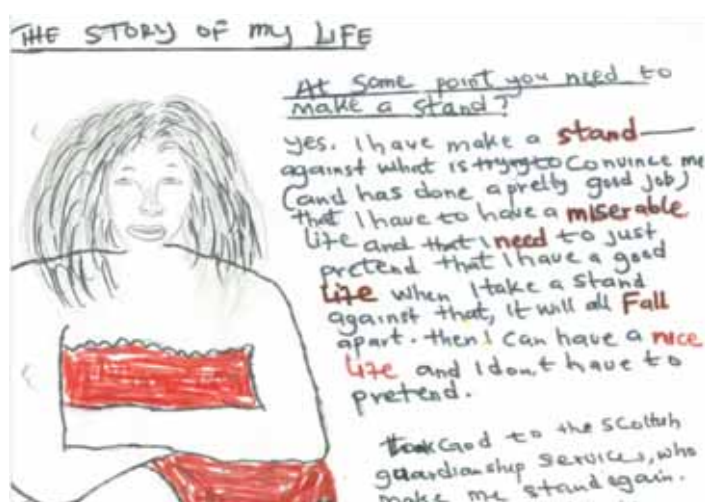 THE STORY OF my LIFE
At some point you need to
make a stand?
yes. I have make a stand
against what is trying to convince me
(and has done a pretty good job)
that I have to have a miserable
life and that I need to just
pretend that I have a good
life when I take a stand
against that, it will all Fall
apart. then I can have a nice
life and I don,t have to
pretend.
God to the Scottish
guardianship services, who
make me stand again.